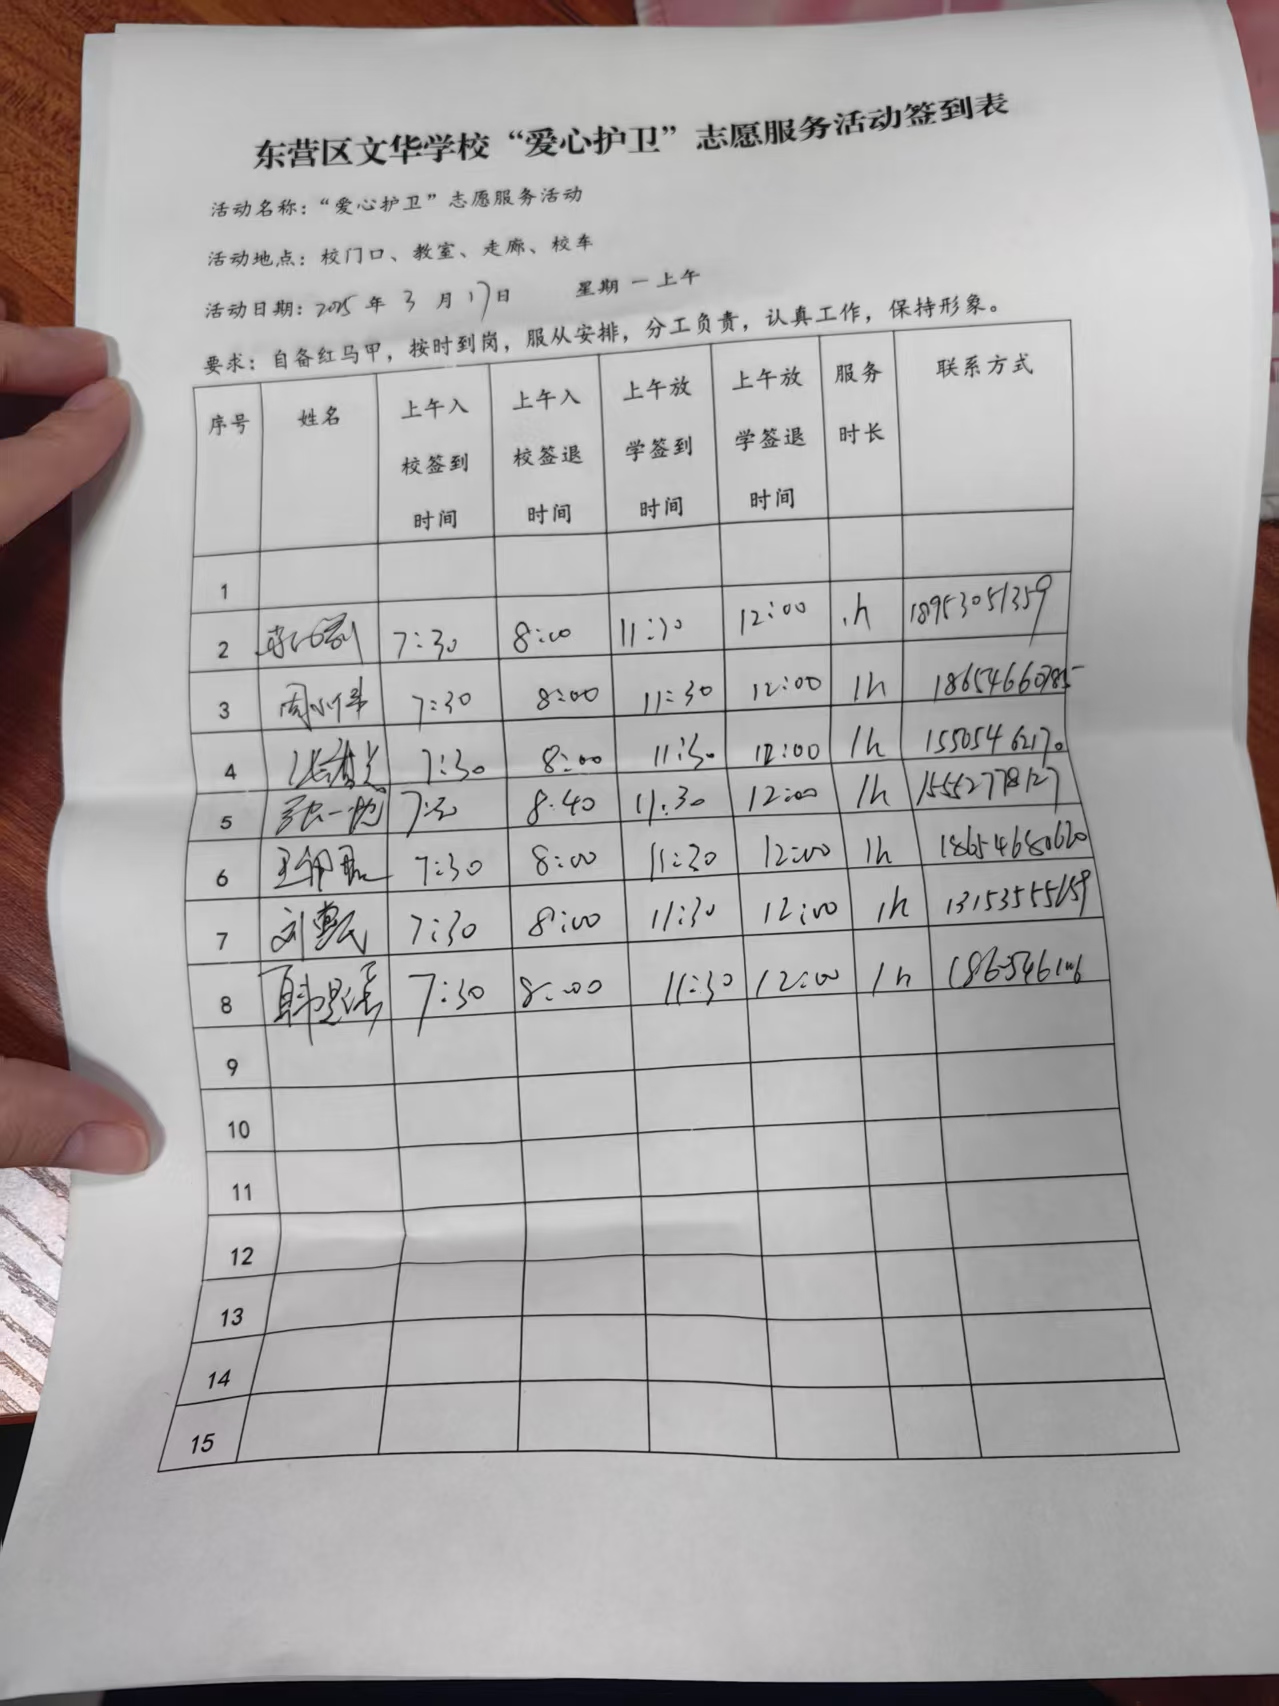 东营区文华学校“爱心护卫”志愿服务活动签到表
活动名称：“爱心护卫”志愿服务活动
活动地点：校门口、教室、走廊、校车
活动日期：2025年 3 月 17日 星期一上午
要求：自备红马甲，按时到岗，服从安排，分工负责，认真工作，保持形象。
序号 姓名 上午入校签到时间 上午入校签退时间 上午放学签到时间 上午放学签退时间 服务时长 联系方式
1
2 7:30 8:00 11:30 12:00 h 18953051359
3 7:30 8:00 11:30 12:00 1h
4 7:30 8:00 11:30 12:00 1h 15505462170
5 7:30 8:40 11:30 12:00 1h 15552778127
6 7:30 8:00 11:30 12:00 1h 18654680620
7 刘 7:30 8:00 11:30 12:00 1h 13153555159
8 韩 7:30 8:00 11:30 12:00 1h
9
10
11
12
13
14
15